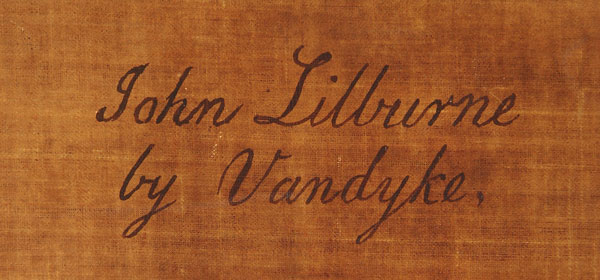 John Lilburne
by Vandyke.